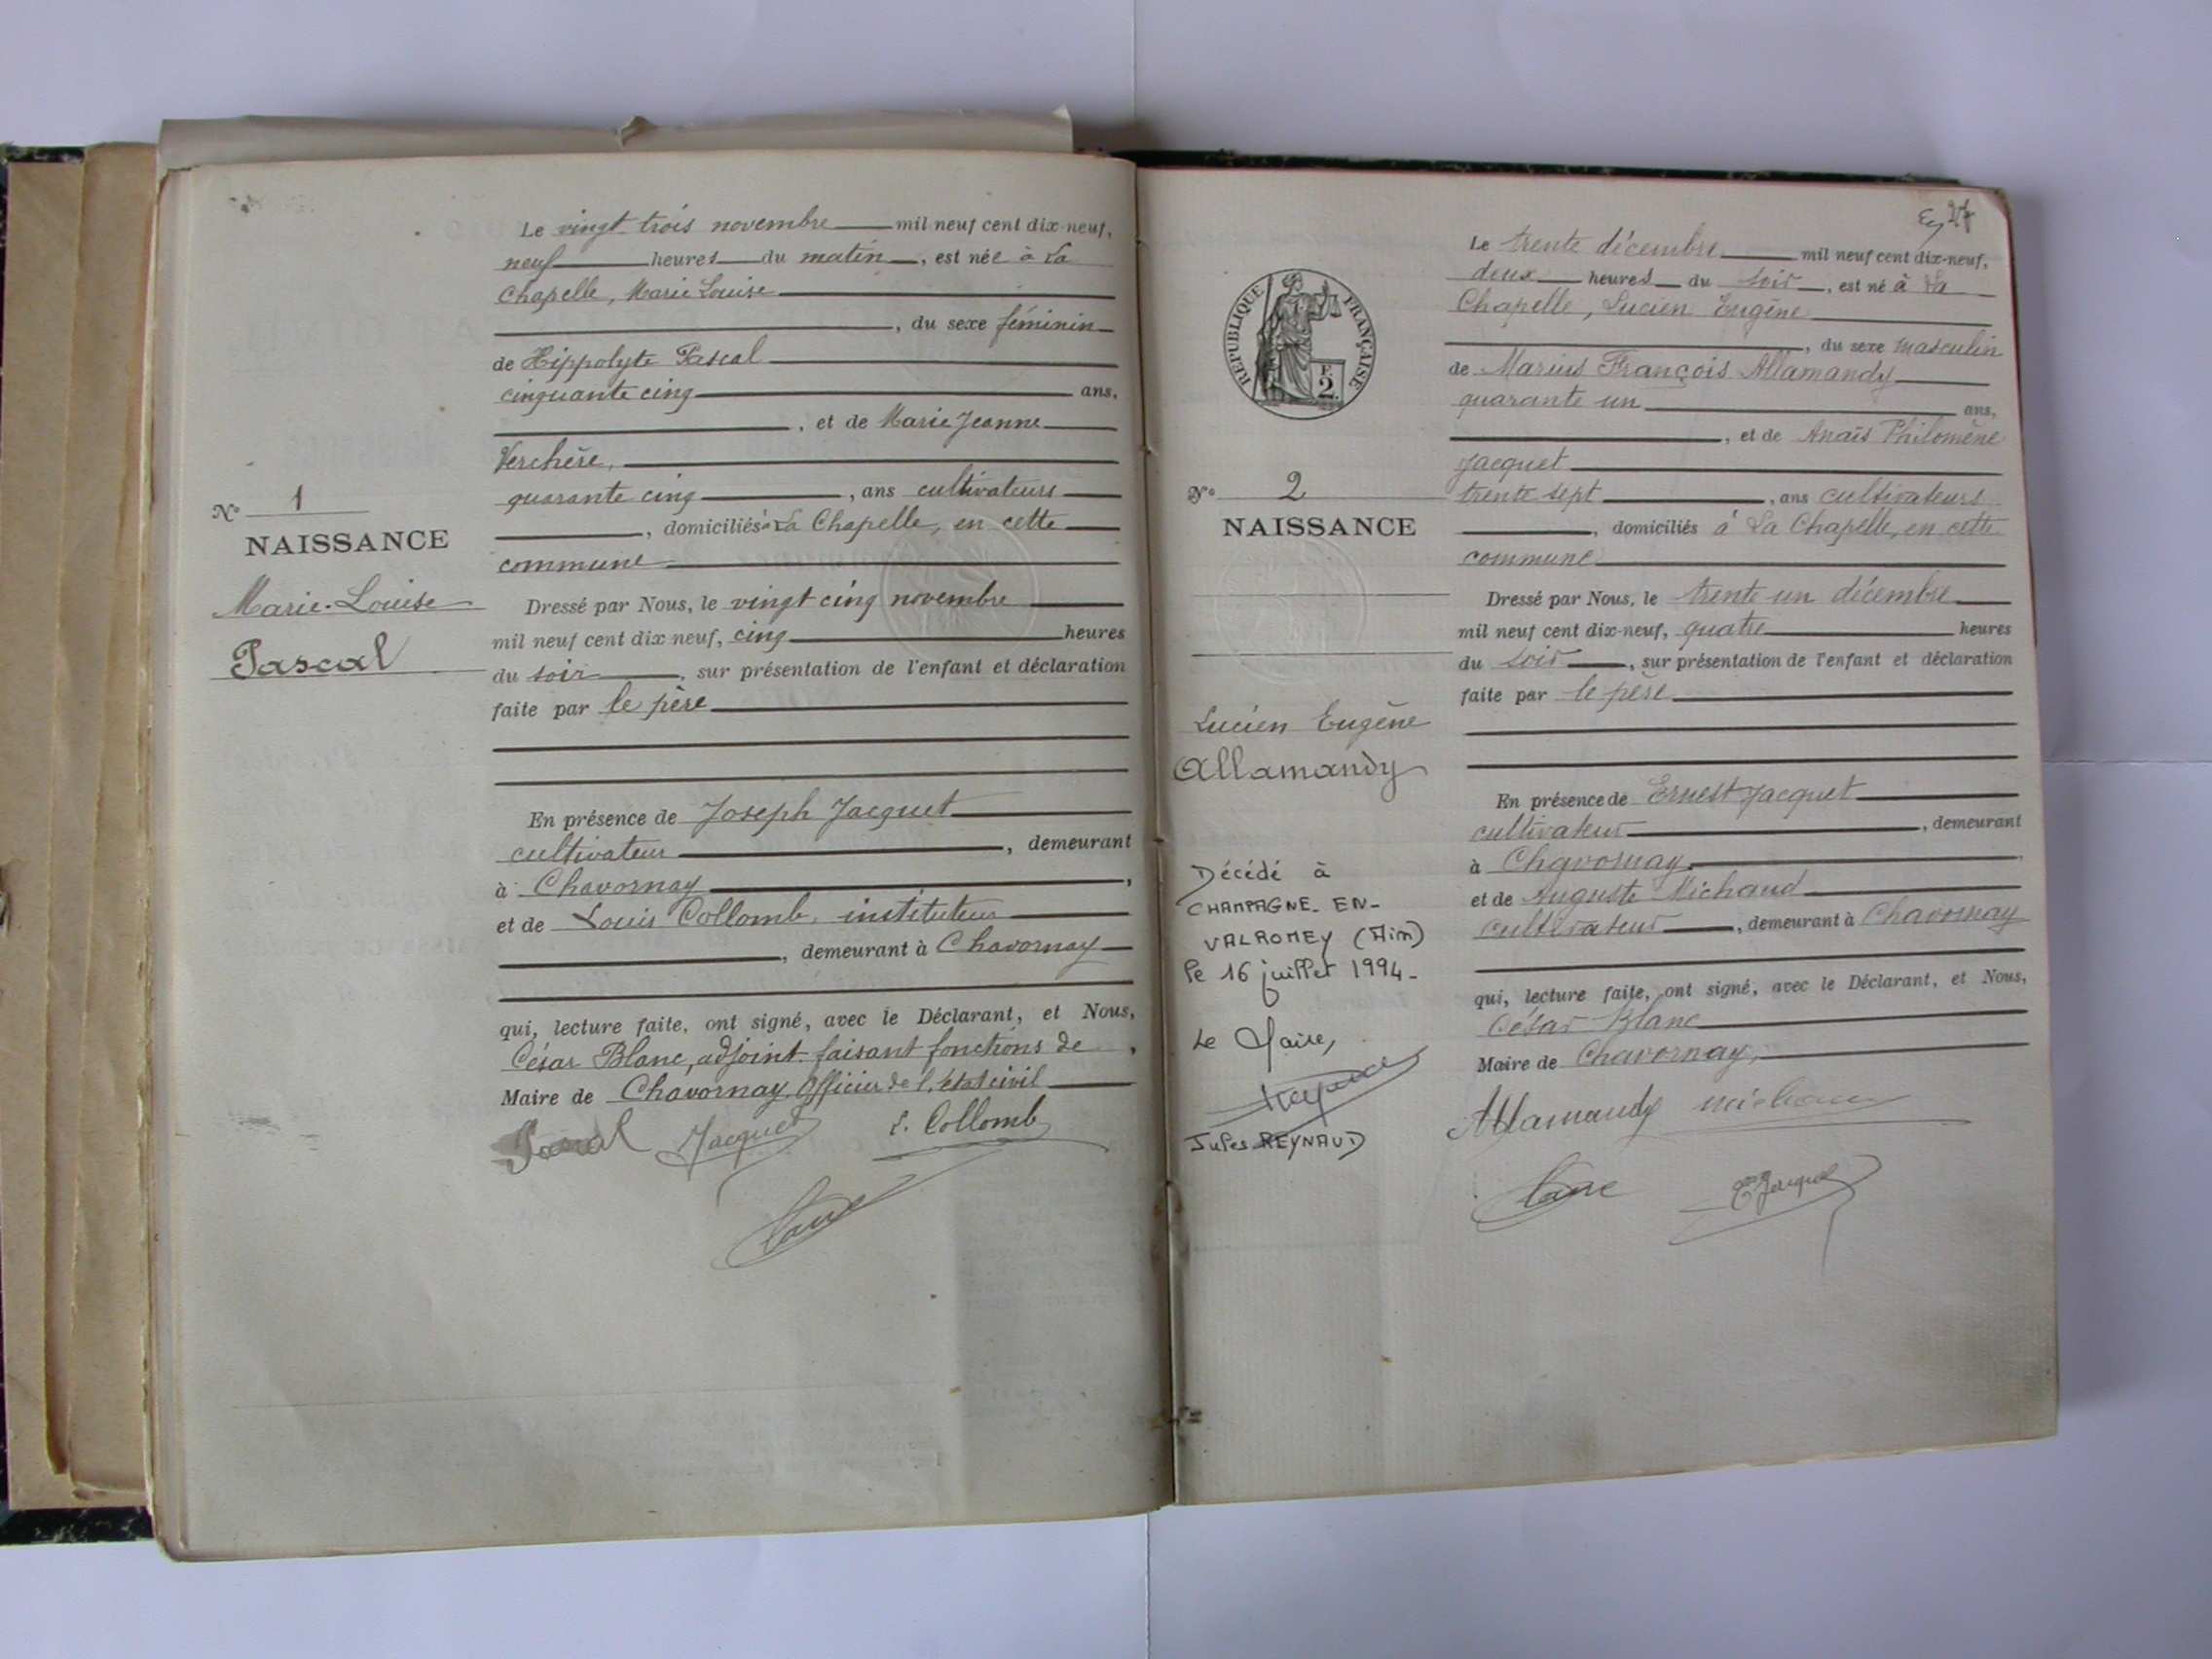 Le vingt trois novembre mil neuf cent dix-neuf,
neuf heures du matin, est née à La
Chapelle, Marie Louise
, du sexe féminin
de Hippolyte Pascal
cinquante cinq ans,
, et de Marie Jeanne
Verchère,
quarante cinq, ans cultivateurs
, domiciliés à La Chapelle, en cette
commune
N° 1
NAISSANCE
Marie-Louise
Pascal
Dressé par Nous, le vingt cinq novembre
mil neuf cent dix-neuf, cinq heures
du soir, sur présentation de l'enfant et déclaration
faite par le père
En présence de Joseph Jacquet
cultivateur, demeurant
à Chavornay,
et de Louis Collomb, instituteur
, demeurant à Chavornay
qui, lecture faite, ont signé, avec le Déclarant, et Nous,
César Blanc, adjoint faisant fonctions de,
Maire de Chavornay, Officier de l'état civil
Pascal Jacquet L. Collomb
Blanc
27
RÉPUBLIQUE FRANÇAISE
2
F.
Le trente décembre mil neuf cent dix-neuf,
deux heures du soir, est né à La
Chapelle, Lucien Eugène
, du sexe masculin
de Marius François Allamandy
quarante un ans,
, et de Anaïs Philomène
Jacquet
trente sept, ans cultivateurs
, domiciliés à La Chapelle, en cette
commune
N° 2
NAISSANCE
Lucien Eugène
Allamandy
Dressé par Nous, le trente un décembre
mil neuf cent dix-neuf, quatre heures
du soir, sur présentation de l'enfant et déclaration
faite par le père
En présence de Ernest Jacquet
cultivateur, demeurant
à Chavornay,
et de Auguste Michaud
cultivateur, demeurant à Chavornay
qui, lecture faite, ont signé, avec le Déclarant, et Nous,
César Blanc
Maire de Chavornay,
Allamandy Michaud
Blanc E. Jacquet
Décédé à
CHAMPAGNE-EN-
VALROMEY (Ain)
le 16 juillet 1994-
Le Maire,
Jules REYNAUD